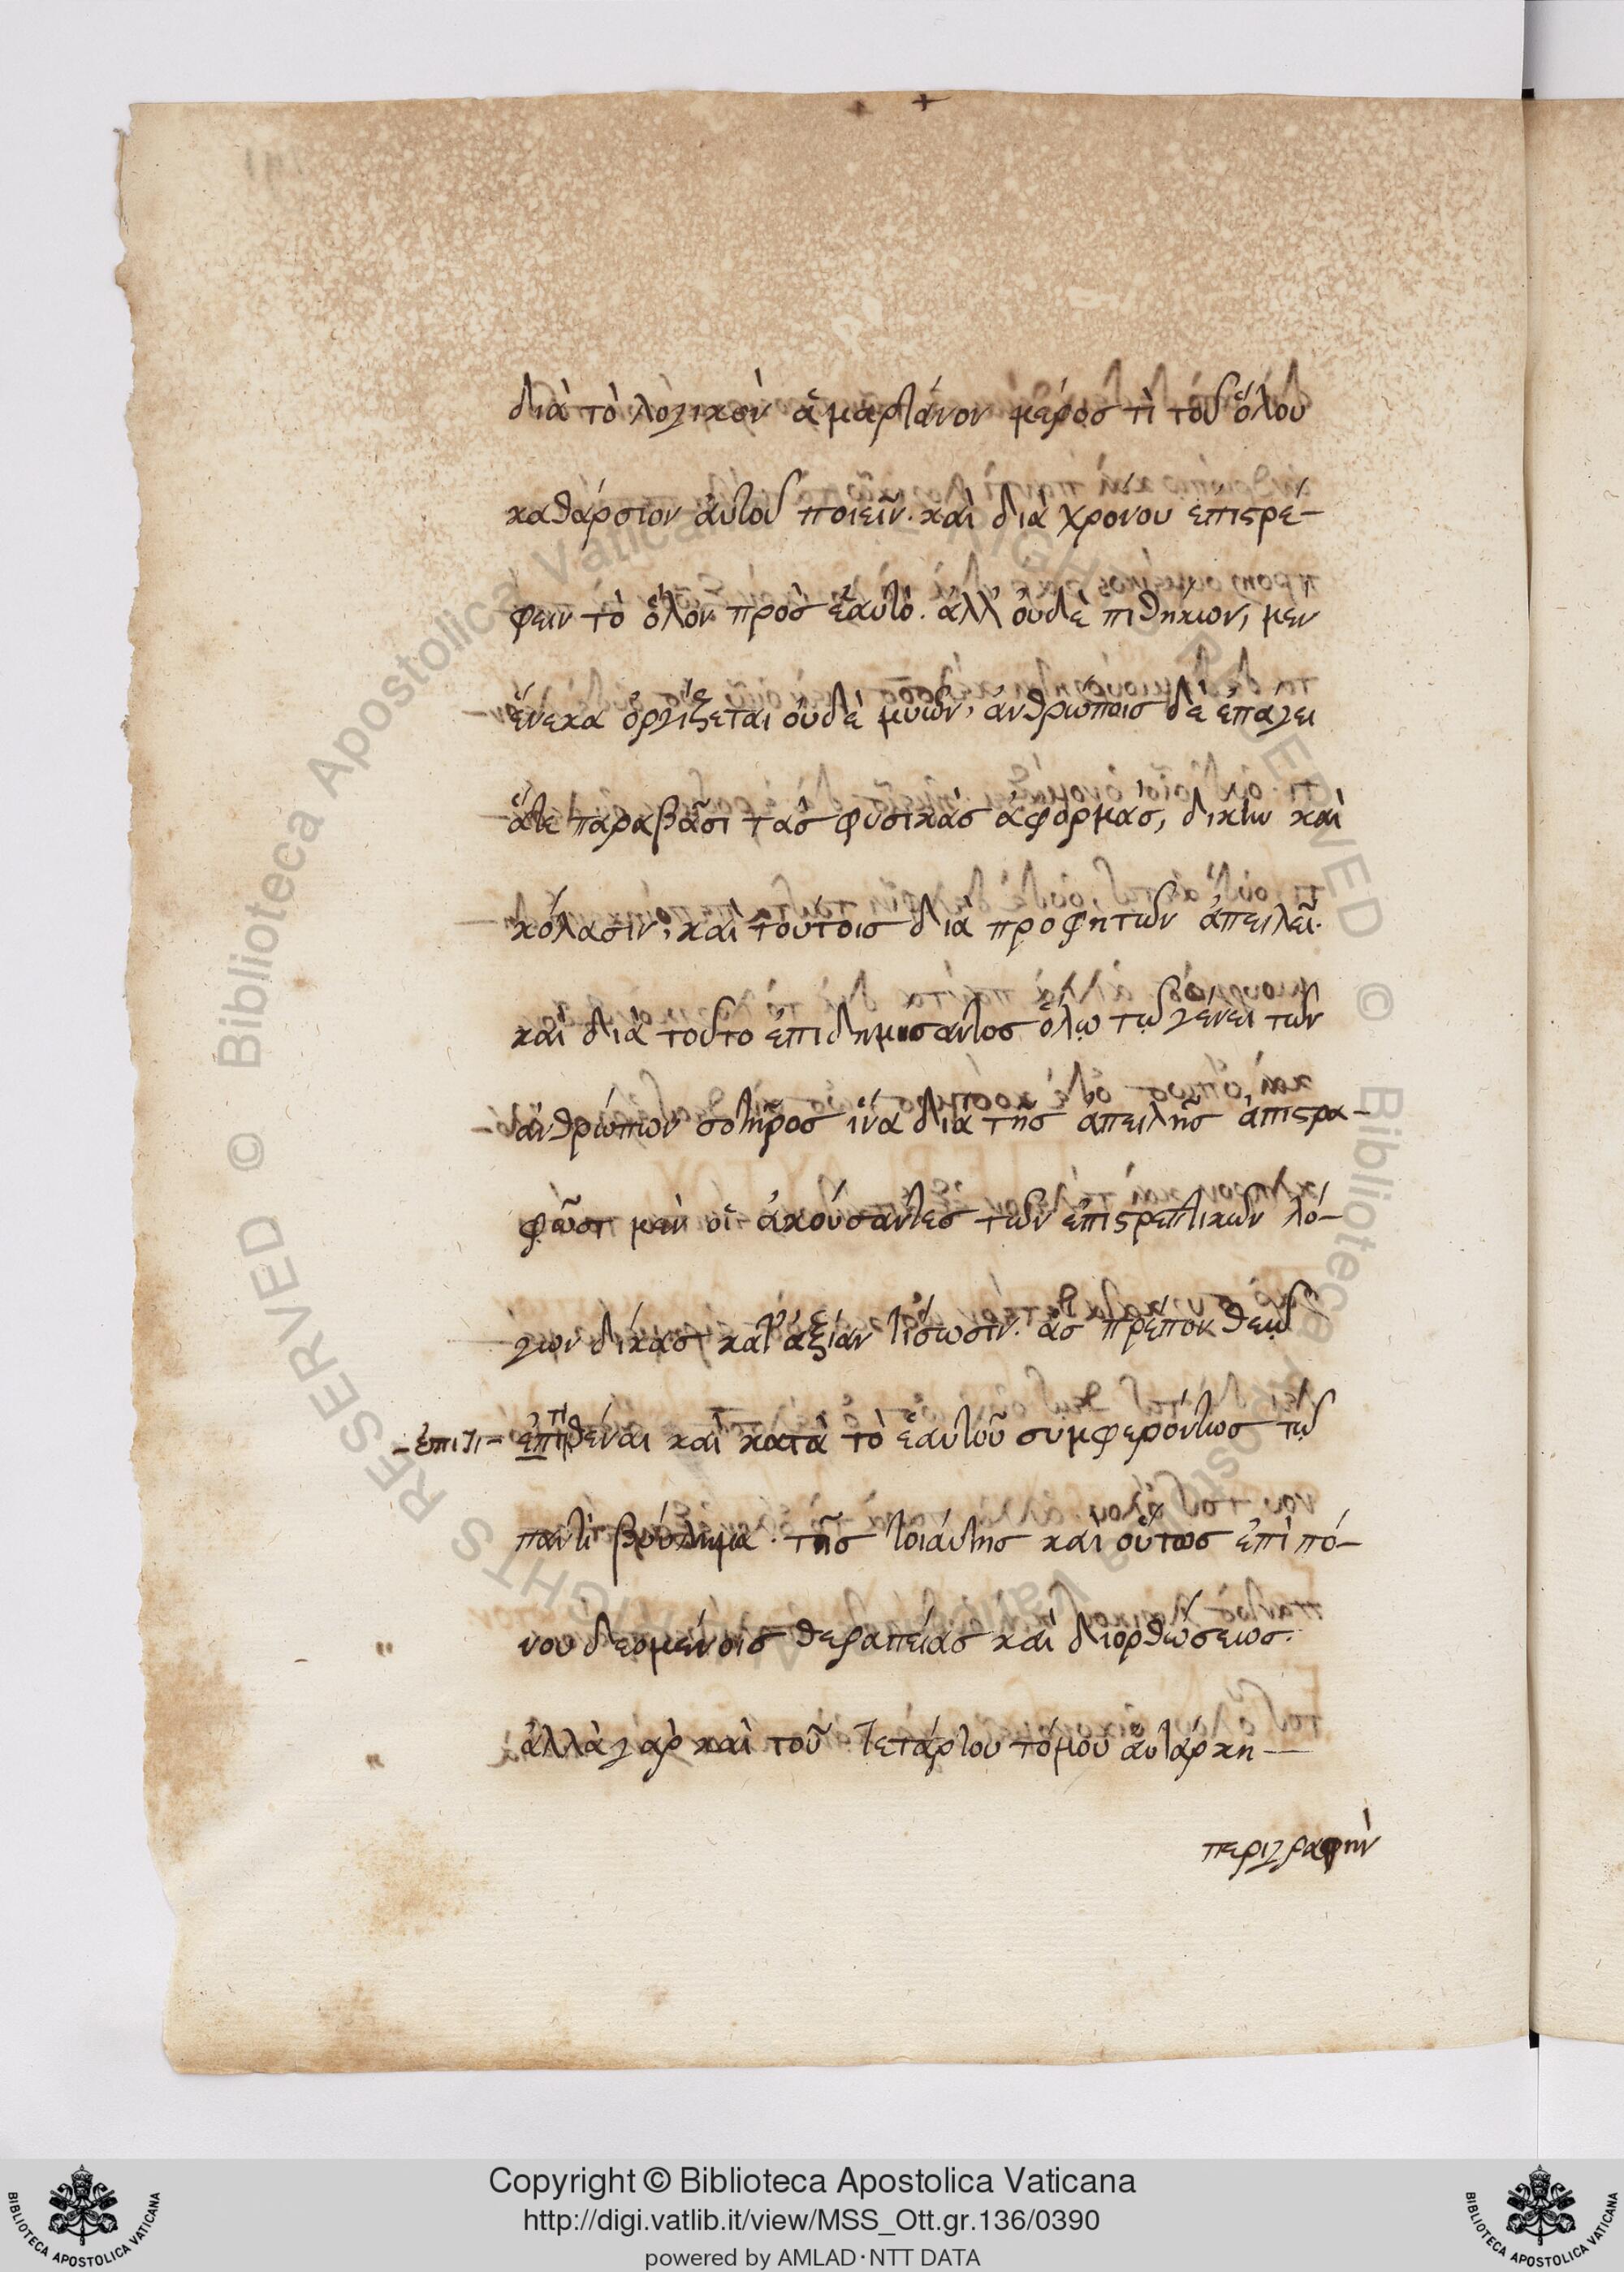 διὰ τὸ λογικὸν ἁμαρτάνον μέρος τὶ τοῦ ὅλου
καθάρσιον αὐτοῦ ποιεῖν· καὶ διὰ χρόνου ἐπιστρέ-
φειν τὸ ὅλον πρὸς ἑαυτό. ἀλλ' οὐδὲ πιθήκων, μὲν
ἕνεκα ὀργίζεται οὐδὲ μυῶν, ἀνθρώποις δὲ ἐπάγει
ἅτε παραβᾶσι τὰς φυσικὰς ἀφορμὰς, δίκην καὶ
κόλασιν, καὶ τούτοις διὰ προφητῶν ἀπειλεῖ.
καὶ διὰ τοῦτο ἐπιδημήσαντος ὅλῳ τῷ γένει τῶν
ἀνθρώπων σωτῆρος ἵνα διὰ τῆς ἀπειλῆς ἐπιστρα-
φῶσι μὲν οἱ ἀκούσαντες τῶν ἐπιστρεπτικῶν λό-
γων δίκας κατ' ἀξίαν τίσωσιν. ἃς πρέπον θεῷ
-ἐπιτι- ἐπιτιθέναι καὶ κατὰ τὸ ἑαυτοῦ συμφερόντως τῷ
παντὶ βούλημα. τῆς τοιαύτης καὶ οὕτως ἐπιπό-
νου δεομένοις θεραπείας καὶ διορθώσεως.
ἀλλὰ γὰρ καὶ τοῦ τετάρτου τόμου αὐτάρκη-
περιγραφὴν
Copyright © Biblioteca Apostolica Vaticana
http://digi.vatlib.it/view/MSS_Ott.gr.136/0390
powered by AMLAD·NTT DATA